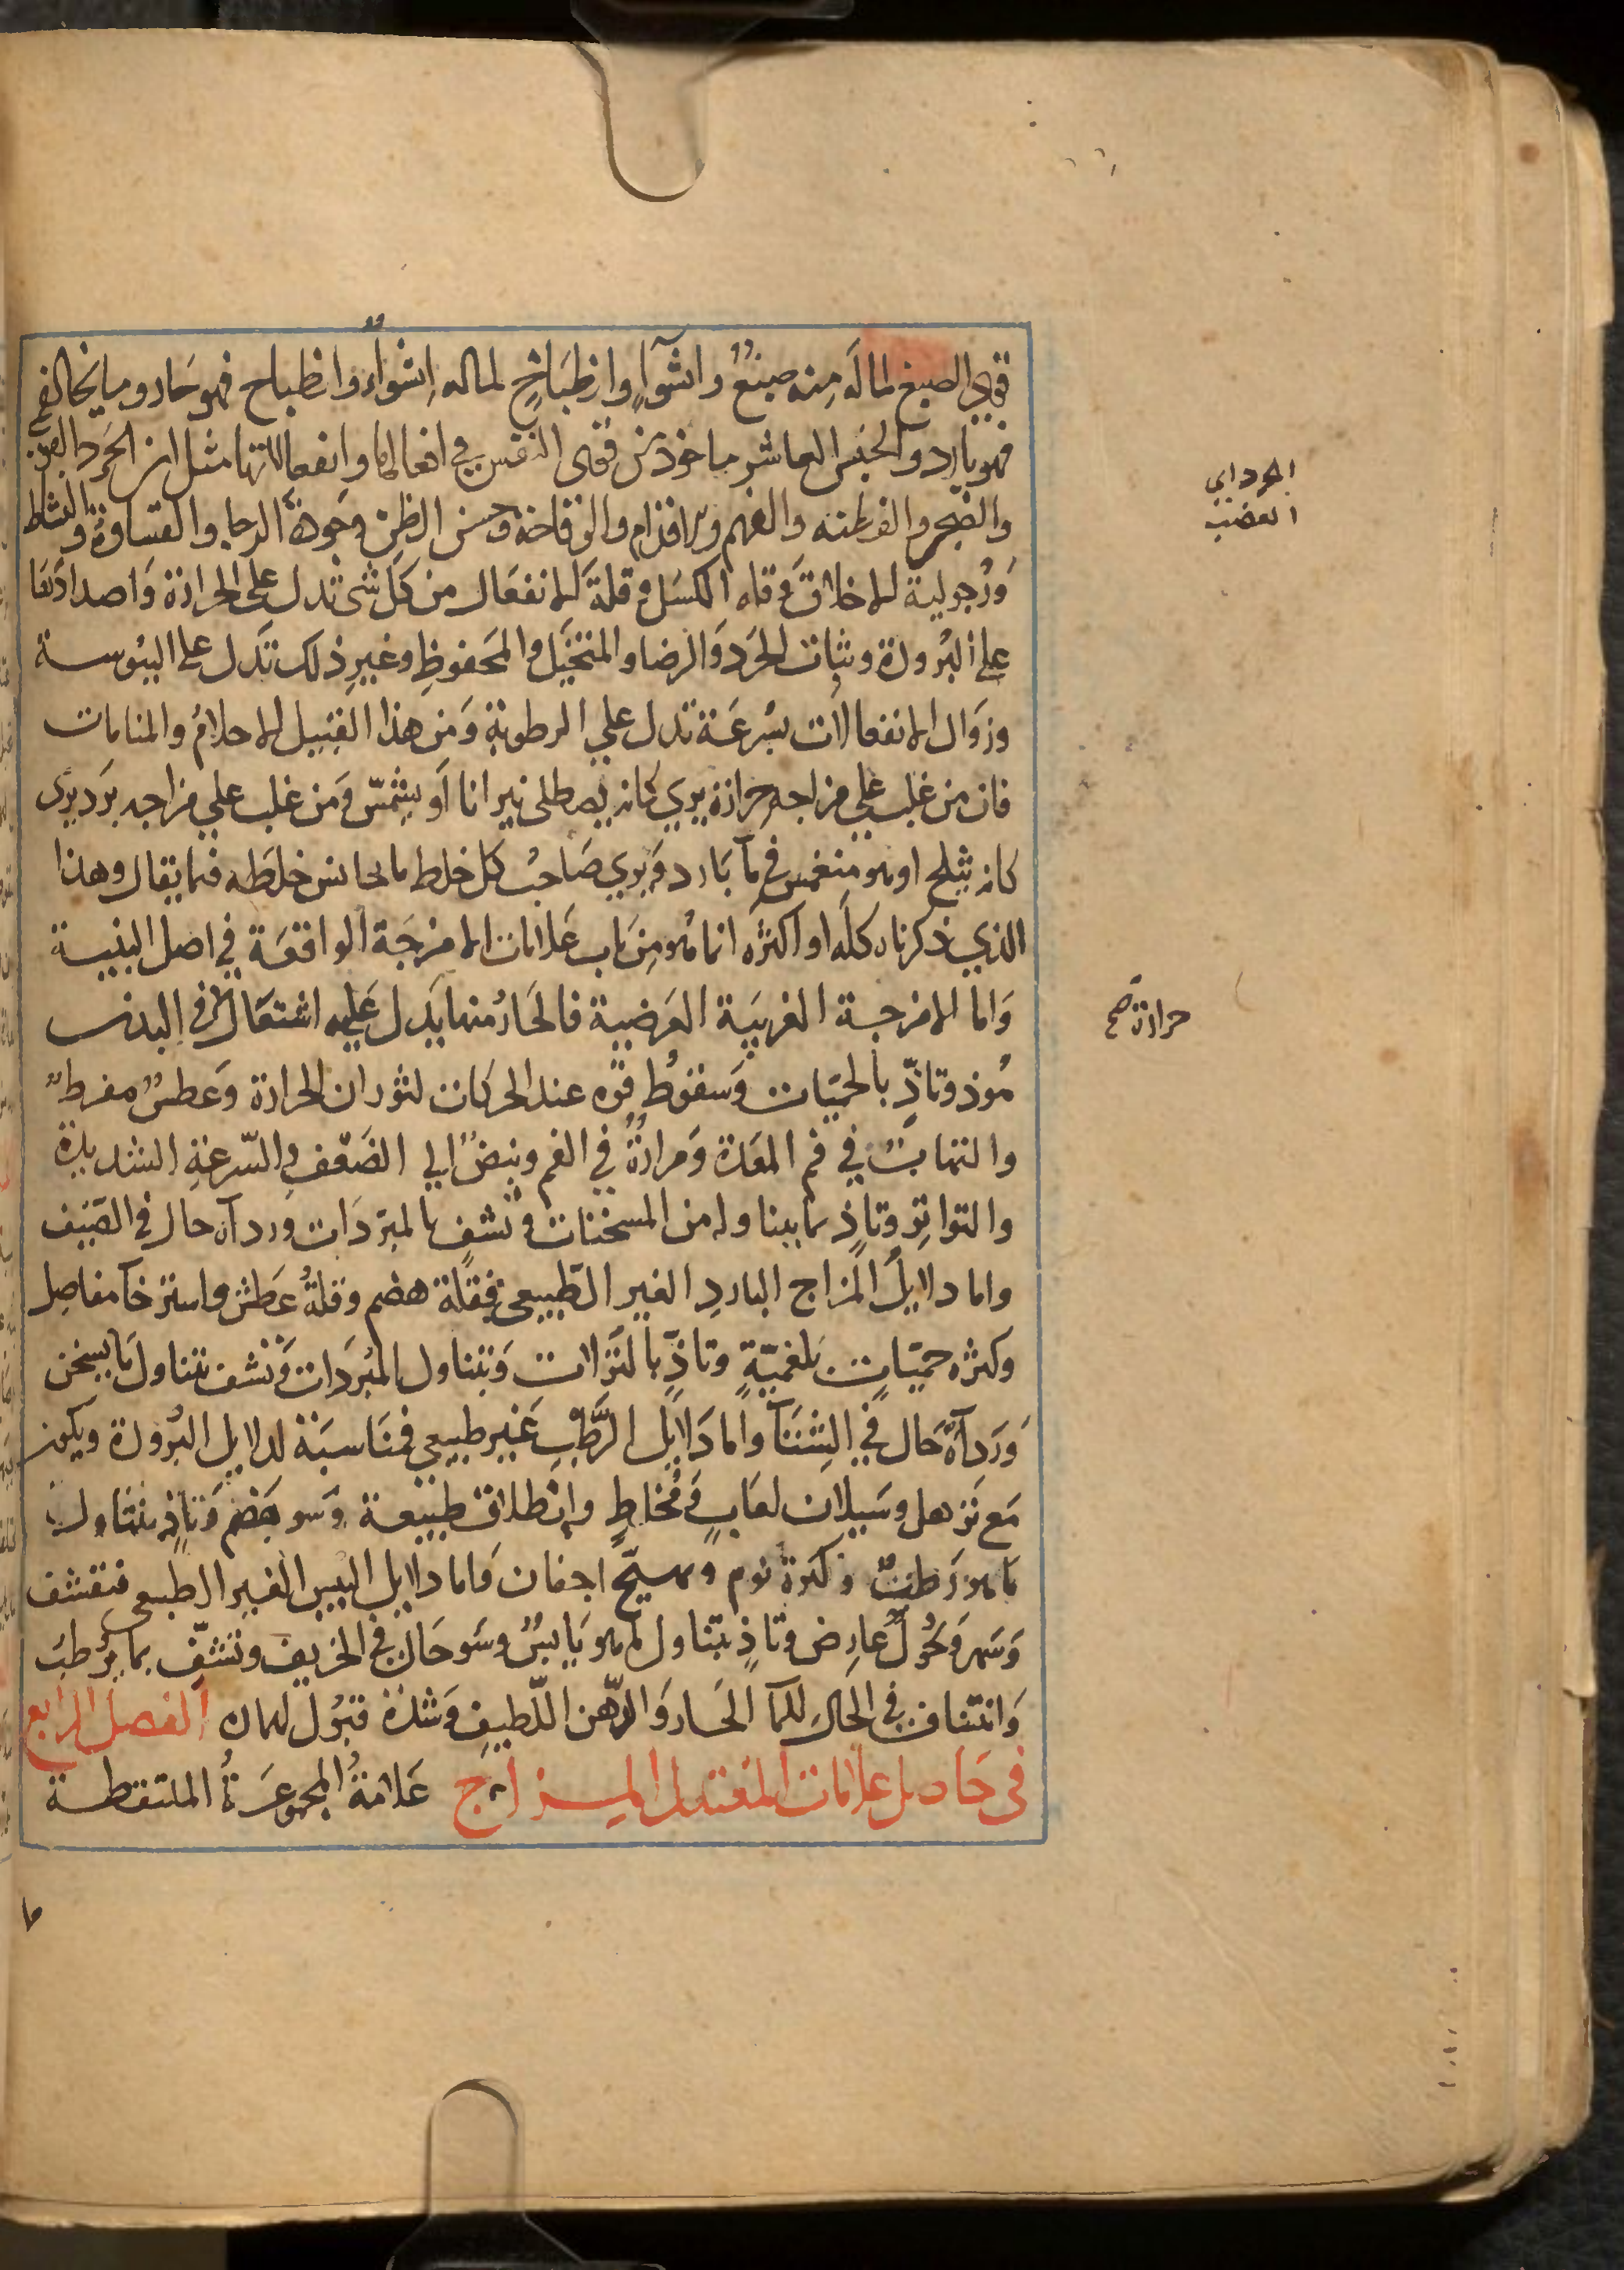 قوي الصبغ لما له منه صبغٌ وانشوآءٍ وانطباخٍ لما له انشواء وانطباح فهو حار وما يخالفه
فهو بارد والجنس العاشر ماخوذ من قوى النفس في افعالها وانفعالاتها مثل ان الحرد القوي
والضجر والفطنه والفهم والاقدام والوقاحة وحسن الظن وجودة الرجا والقساوة والنشاط
ورجولية الاخلاق وقله الكسل وقلة الانفعال من كل شي تدل على الحرارة واضدادها
على البرودة وثبات الحرد والرضا والمتخيل والمحفوظ وغير ذلك تدل على اليبوسة
وزوال الانفعالات بسرعة تدل علي الرطوبة ومن هذا القبيل الاحلام والمنامات
فان من غلب علي مزاجه حرارة يري كانه يصطلى نيرانا او يشمّس ومن غلب علي مزاجه برد يرى
كانه يثلج او هو منغمس في مآ بارد ويري صاحب كل خلط ما يجانس خلطه فيما يقال وهذا
الذي ذكرناه كله او اكثره انما هو من باب علامات الامزجة الواقعة في اصل البنية
واما الامزجة الغريبة العرضية فالحار منها يدل عليه اشتعال في البدن
مُوذ وتاذٍّ بالحميّات وسقوط قوه عند الحركات لثوران الحرارة وعطش مفرط
والتهابٌ في فم المعدة ومرارةٌ في الفم ونبض الي الضعف والسّرعة الشديدة
والتواتر وتاذٍ بما يتناوله من المسخنات وتشفٍ بالمبرّدات وردآه حال في الصيف
واما دلايل المزاج البارد الغير الطّبيعي فقلة هضم وقلة عطش واسترخآ مفاصل
وكثره حميّات بلغميّةٍ وتاذٍّ بالنزلات وبتناول المبردات وتشف بتناول ما يسخن
وردآةُ حال في الشتآ واما دلايل الرّطب غير طبيعي فمناسبة لدلايل البرودة ويكون
مع ترهل وسيلان لعابٍ ومخاطٍ وانطلاق طبيعة وسو هضم وتاذٍ بتناول
ما هو رطبٌ وكثرة نوم وتهيّج اجفان واما دلايل اليبس الغير الطبيعي فتقشف
وسهر ونحولٌ عارض وتاذٍ بتناول ما هو يابسٌ وسو حال في الخريف وتشفّ بما يرطب
وانتشاف في الحال للمآ الحار والدّهن اللّطيف وشدة قبول لهما الفصل الرابع
في حاصل علامات المعتدل المزاج علامةُ المجموعةُ الملتقطة
الحرد اي
الغضب
حرارة صح